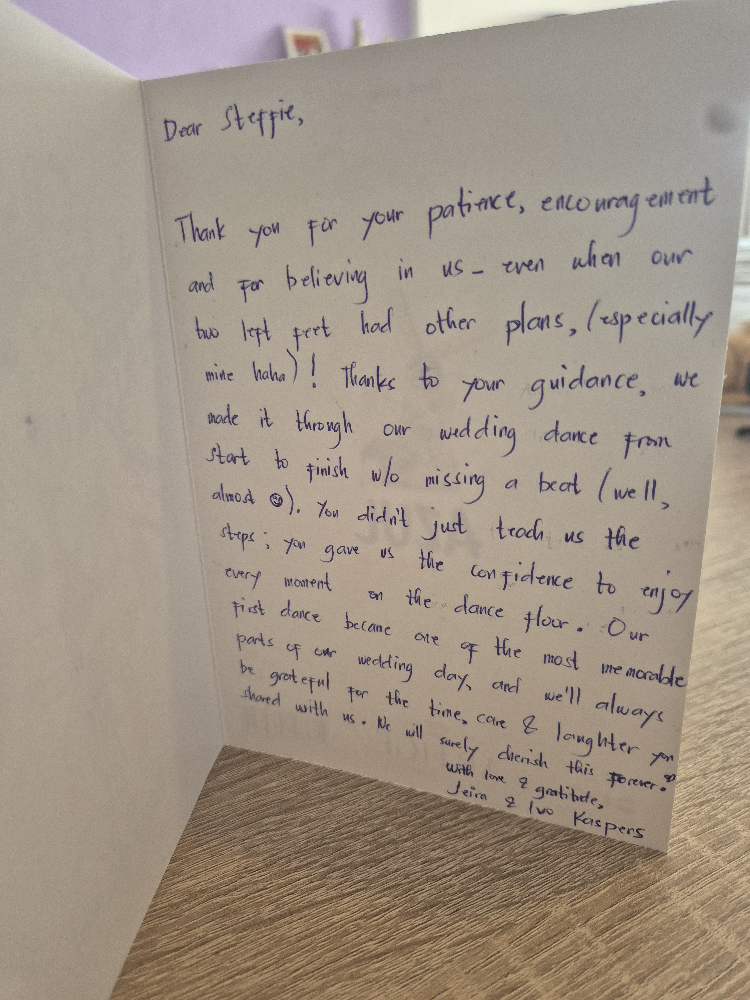 Dear Steffie,
Thank you for your patience, encouragement
and for believing in us – even when our
two left feet had other plans, (especially
mine haha)! Thanks to your guidance, we
made it through our wedding dance from
start to finish w/o missing a beat (well,
almost ☺). You didn't just teach us the
steps; you gave us the confidence to enjoy
every moment on the dance floor. Our
first dance became one of the most memorable
parts of our wedding day, and we'll always
be grateful for the time, care & laughter you
shared with us. We will surely cherish this forever.
with love & gratitude,
Jeira & Ivo Kaspers